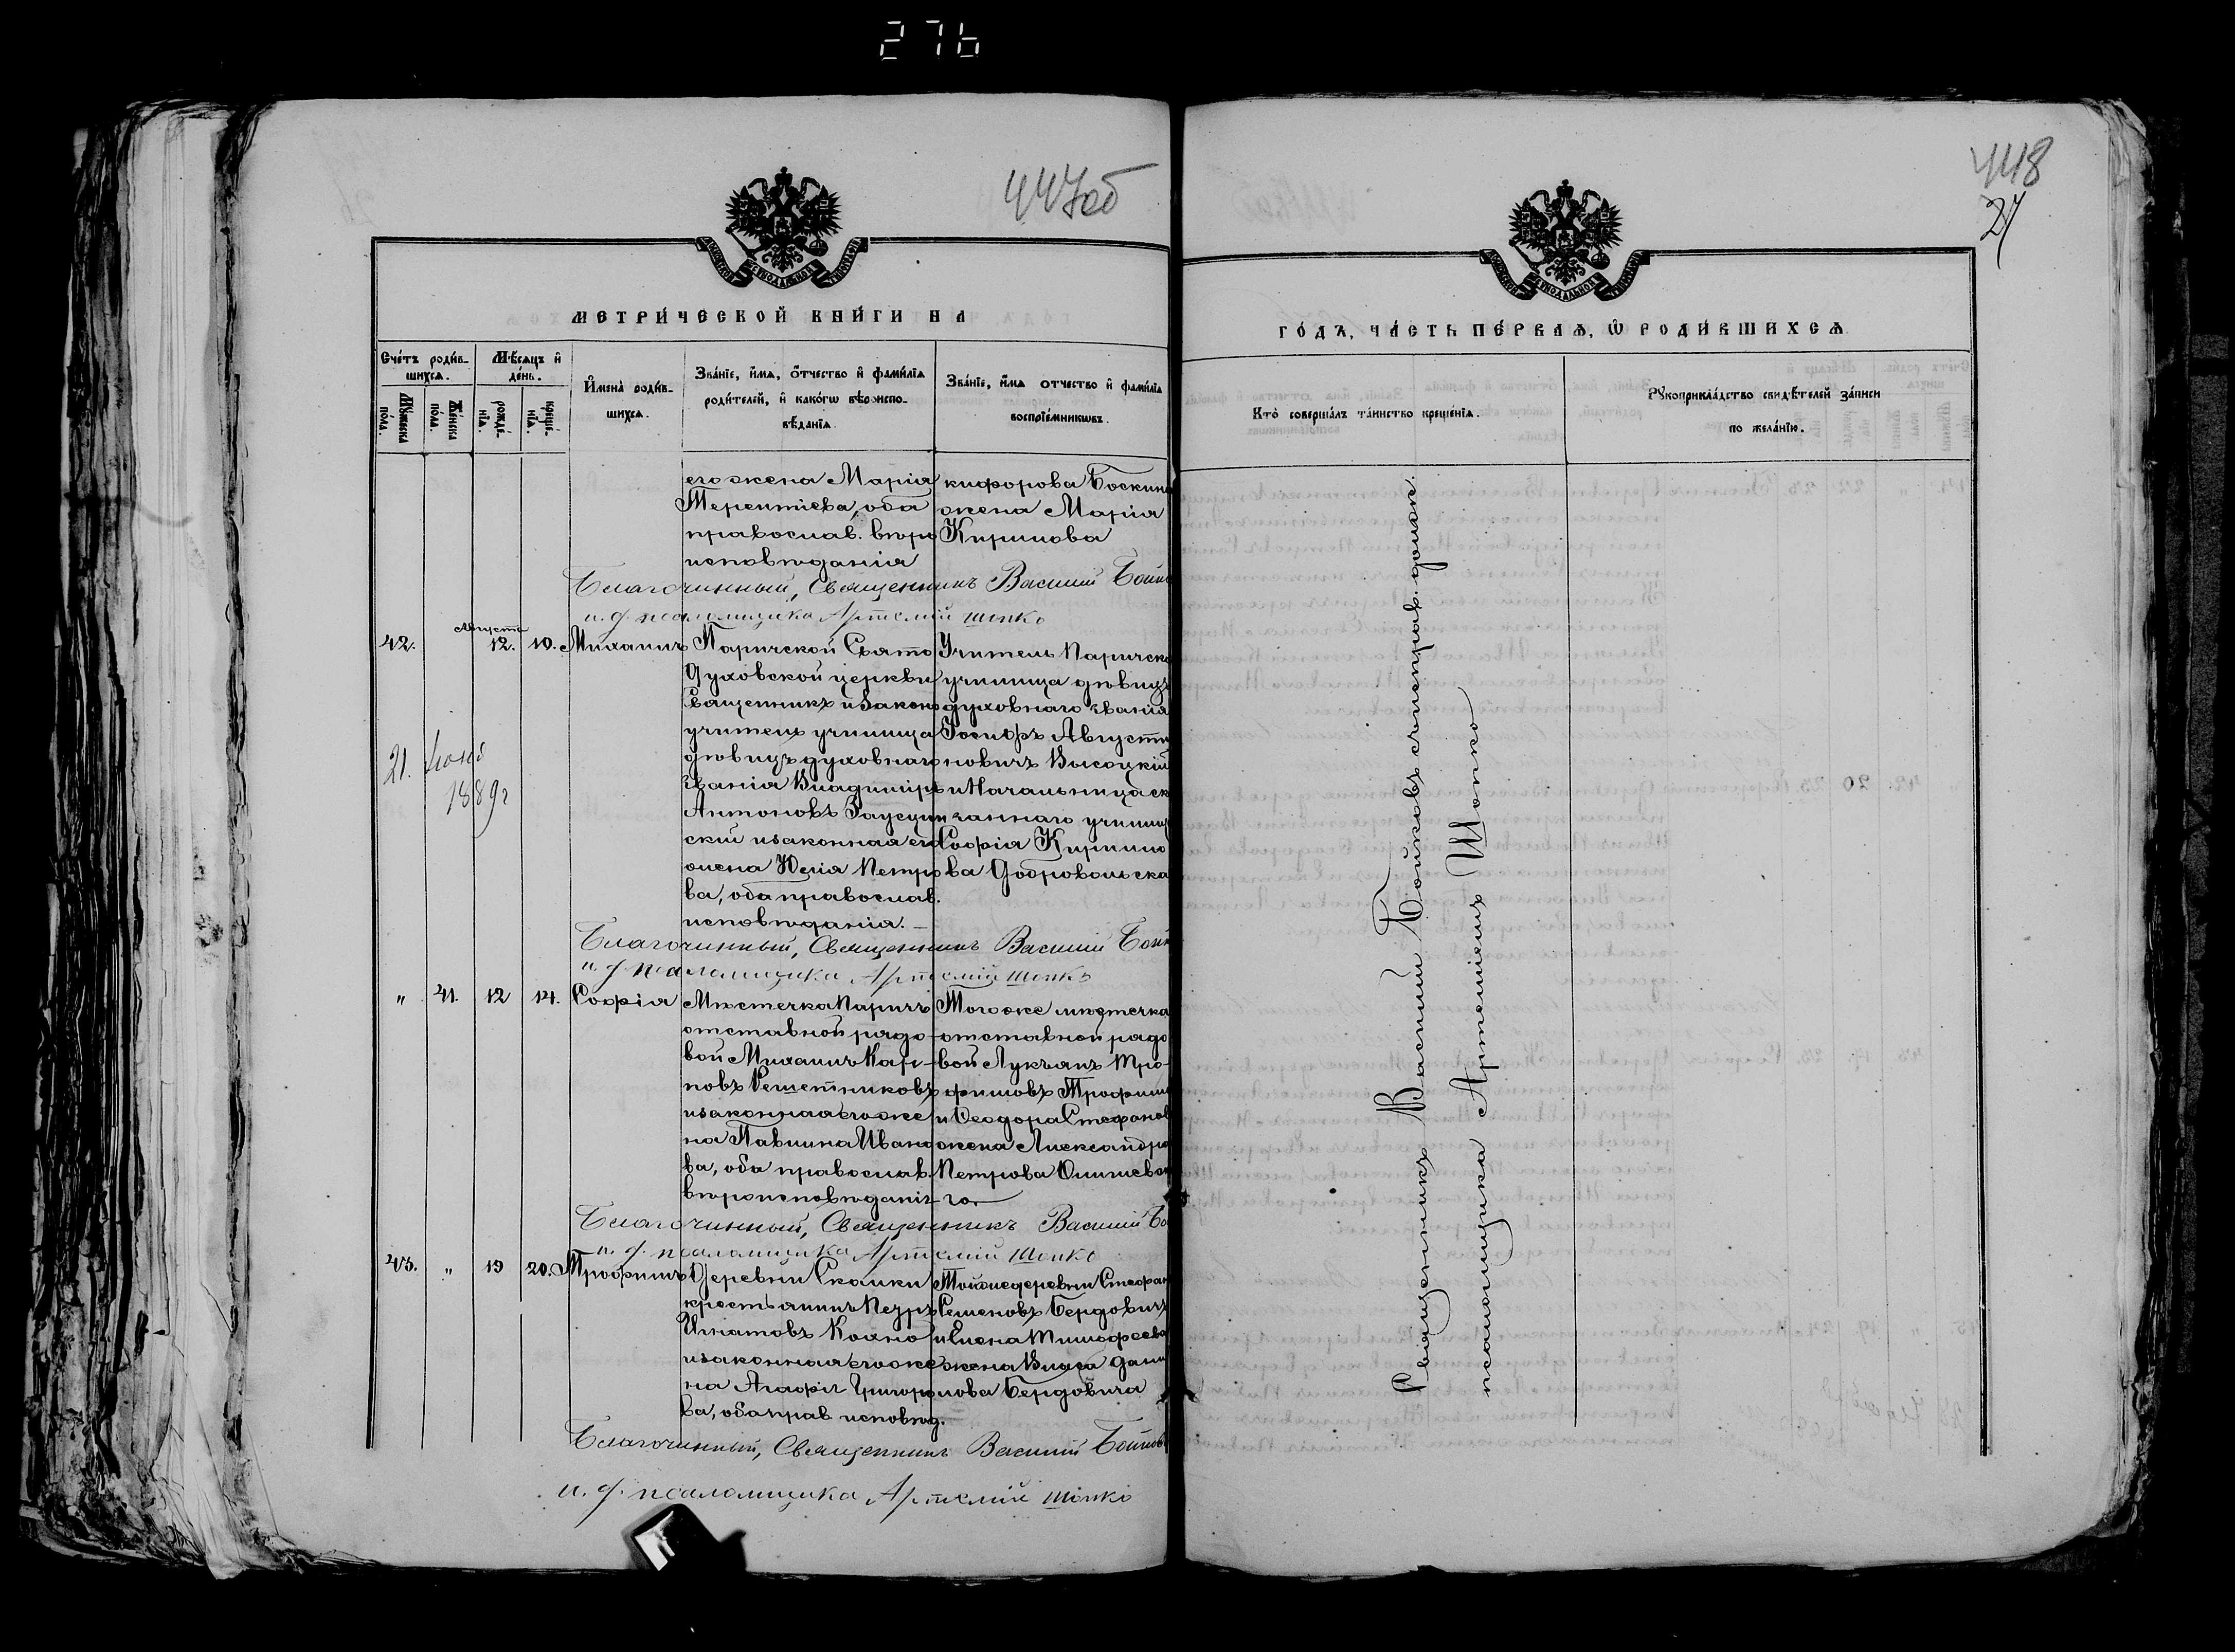 276
447об
МОСКОВСКОЙ СѴНОДАЛЬНОЙ ТИПОГРАФІИ
МЕТРИ́ЧЕСКОЙ КНИ́ГИ НА
Сче́тъ роди́в-
шихсѧ.
Мѣ́сѧцъ и҆
де́нь.
Мꙋ́жеска
по́ла.
Же́нска
по́ла.
рожде́-
нїѧ.
креще́-
нїѧ.
И҆мена̀ роди́в-
шихсѧ.
Зва́нїе, и҆́мѧ, ѻ҆́тчество и҆ фами́лїѧ
роди́телей, и҆ како́гѡ вѣроиспо-
вѣ́данїѧ.
Зва́нїе, и҆́мѧ отчество и҆ фами́лїѧ
воспрїе́мникѡвъ.
его жена Марія
Терентіева, оба
православ. вѣро
исповѣданія
кифорова Боскина
жена Марія
Кирилова
Благочинный, Священникъ Василій Бойко
и. д. псаломщика Артемій Шопко
42.
Августъ
12.
10.
Михаилъ
Паричской Свято
Духовской церкви
Священникъ и законо
учитель училища
дѣвицъ духовнаго
званія Владиміръ
Антоновъ
скій и законная его
жена Юлія Петро
ва, оба православ.
исповѣданія. —
Учитель Паричска
училища дѣвицъ
духовнаго званія
Іосифъ Августи
новичъ Высоцкій
и Начальница ск
заннаго училищ
Софія Кирило
ва Добровольска
21.
1889г
Благочинный, Священникъ Василій Бойк
и. д. псаломщика Артемій Шопко
" 41. 12 14. Софія
Мѣстечка Паричъ
отставной рядо-
вой Михаилъ Кар-
повъ Решетниковъ
и законная его же
на Павлина Ивано
ва, оба православ.
вѣроисповѣданія
Тогоже мѣстечка
отставной рядо
вой Лукьянъ Тро-
фимовъ Трофим
и Ѳеодора Стефанов
жена Александра
Петрова
го.
Благочинный, Священникъ Василій Бо
и. д. псаломщика Артемій Шопко
43. " 19 20. Трофимъ
Деревни Скалки
крестьянинъ Петръ
Игнатовъ
и законная его же
на Агафія Григоро
ва, оба прав. исповѣд.
Тойже деревни Стефан
Семеновъ Бердовичъ
и Елена Тимофеева
жена Власа Дани
лова Бердовича
Благочинный, Священникъ Василій Бойков
и. д. псаломщика Артемій Шопко
448
27
МОСКОВСКОЙ СѴНОДАЛЬНОЙ ТИПОГРАФІИ
ГО́ДЪ, ЧА́СТЬ ПЕ́РВАѦ, Ѡ҆ РОДИ́ВШИХСѦ
Кто̀ соверша́лъ та́инство креще́нїѧ.
Рꙋкоприкла́дство свидѣ́телей за́писи
по жела́нїю.
Священникъ Василій Бойковъ съ
псаломщика Артеміемъ Шопко